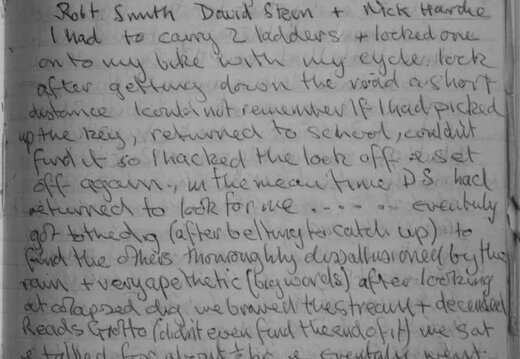 Robt. Smith David Steen + Nick Hardie
I had to carry 2 ladders + locked one
on to my bike with my cycle lock
after getting down the road a short
distance I could not remember If I had picked
up the key, returned to school, couldn't
find it so I hacked the lock off & set
off again, in the mean time D.S. had
returned to look for me ...... eventuly
got to the dig (after belting to catch up) to
find the others thoroughly dissallusioned by the
rain + very apethetic (big words) after looking
at colapsed dig we braved the stream + decended
Reads Grotto (didn't even find the end of it) we sat
& talked for about